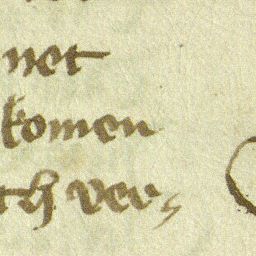 net
komen
th ver⸗